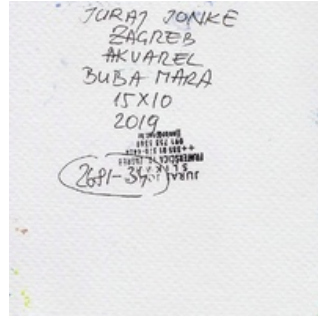 JURAJ JONKE
ZAGREB
AKVAREL
BUBA MARA
15X10
2019
2681-34
JURAJ
SLIKAR